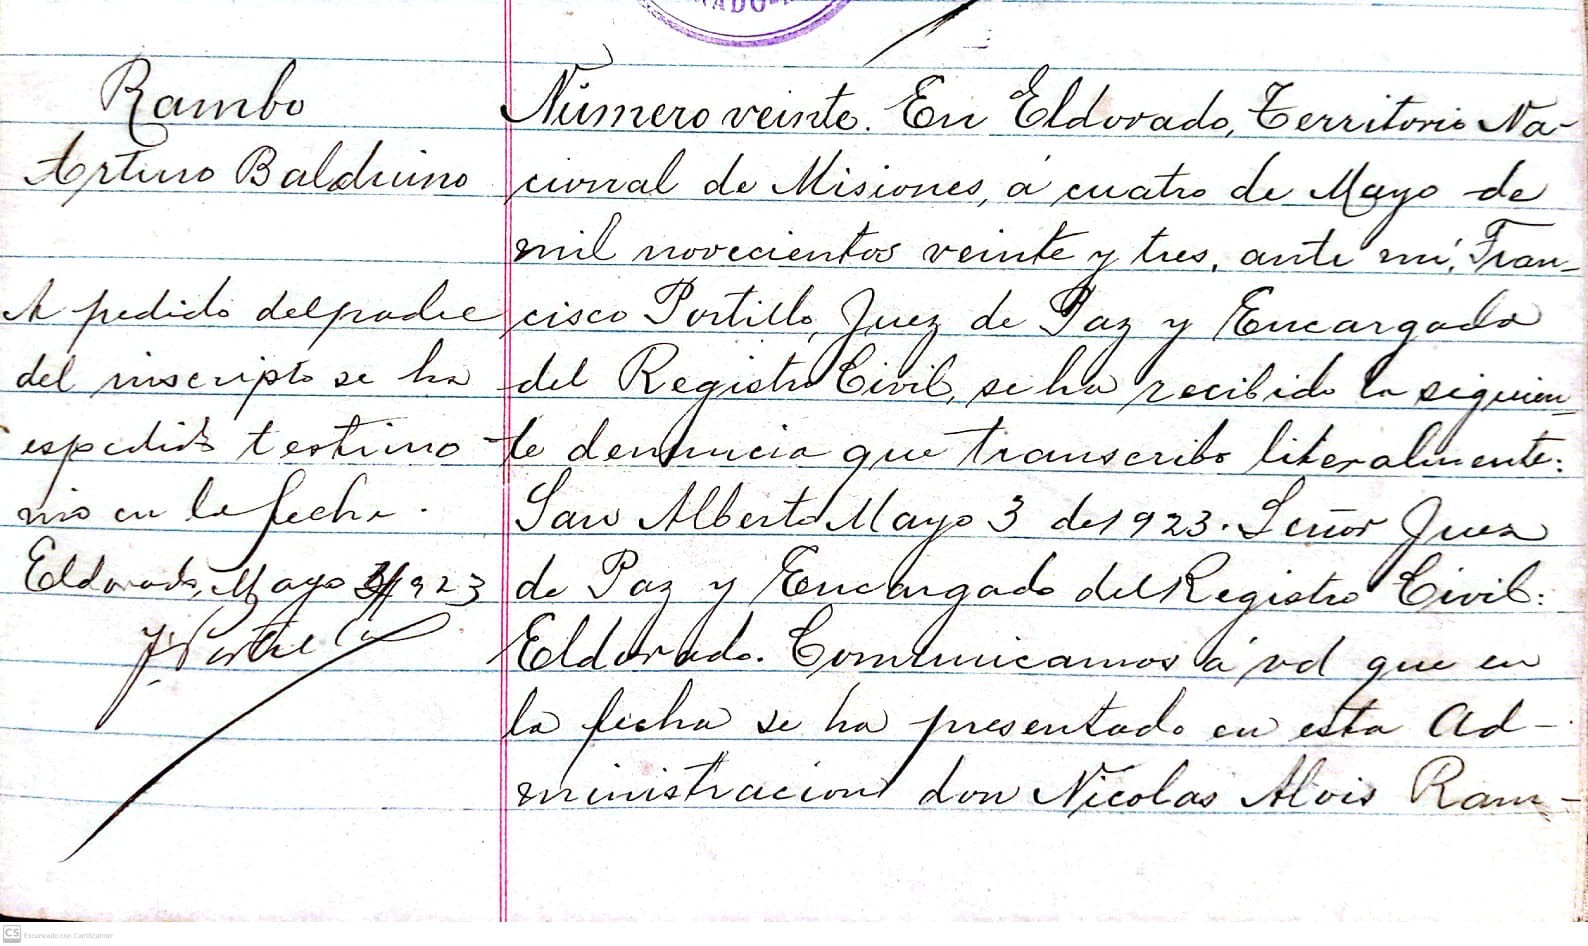 Rambo
Arturo Balduino
A pedido del padre
del inscripto se ha
espedido testimo
nio en la fecha.
Eldorado, Mayo 1923
F. Portillo
Número veinte. En Eldorado, Territorio Na-
cional de Misiones, á cuatro de Mayo de
mil novecientos veinte y tres, ante mí, Fran-
cisco Portillo, Juez de Paz y Encargado
del Registro Civil, se ha recibido la siguien-
te denuncia que transcribo literalmente:
San Alberto Mayo 3 de 1923. Señor Juez
de Paz y Encargado del Registro Civil:
Eldorado. Comunicamos á vd que en
la fecha se ha presentado en esta Ad-
ministracion don Nicolas Alois Ram-
CS Escaneado con CamScanner